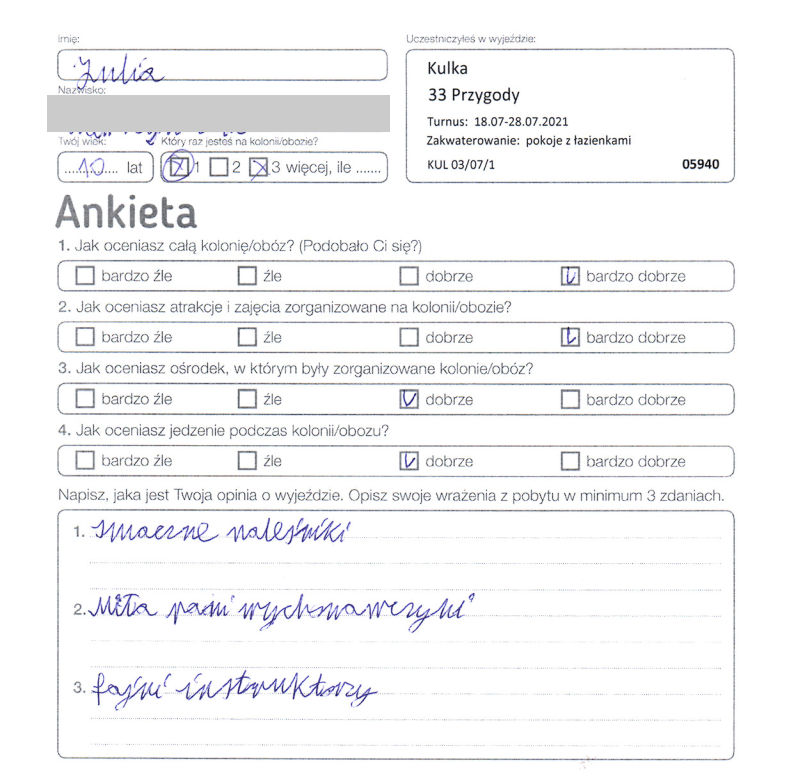 Imię:
Julia
Nazwisko:
Twój wiek:
Który raz jesteś na kolonii/obozie?
.....10.... lat
1 2 3 więcej, ile .......
Uczestniczyłeś w wyjeździe:
Kulka
33 Przygody
Turnus: 18.07-28.07.2021
Zakwaterowanie: pokoje z łazienkami
KUL 03/07/1 05940
Ankieta
1. Jak oceniasz całą kolonię/obóz? (Podobało Ci się?)
bardzo źle źle dobrze bardzo dobrze
2. Jak oceniasz atrakcje i zajęcia zorganizowane na kolonii/obozie?
bardzo źle źle dobrze bardzo dobrze
3. Jak oceniasz ośrodek, w którym były zorganizowane kolonie/obóz?
bardzo źle źle dobrze bardzo dobrze
4. Jak oceniasz jedzenie podczas kolonii/obozu?
bardzo źle źle dobrze bardzo dobrze
Napisz, jaka jest Twoja opinia o wyjeździe. Opisz swoje wrażenia z pobytu w minimum 3 zdaniach.
1. smaczne naleśniki
2. Miła pani
3. fajni instruktorzy